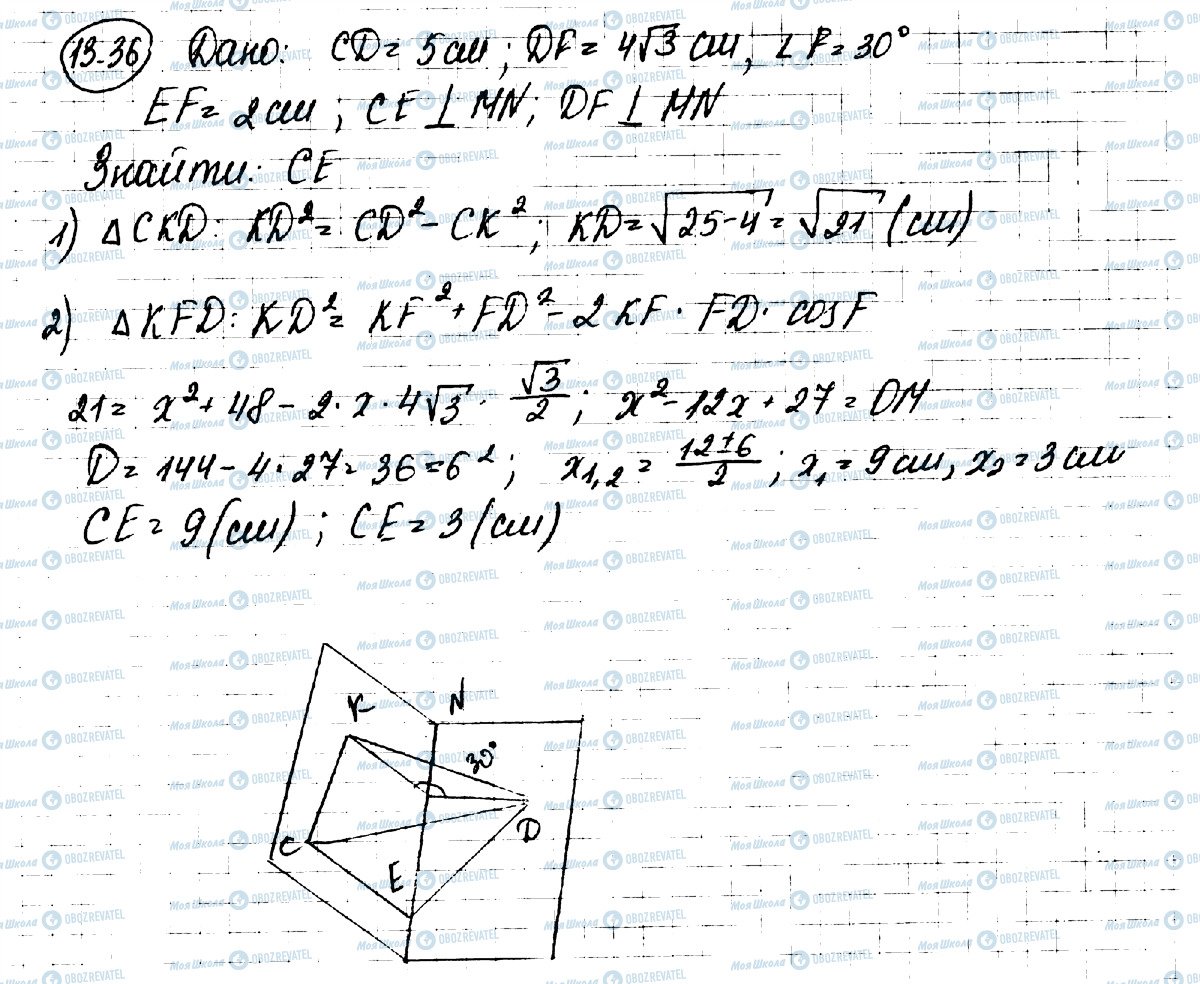 13.36 Дано: CD = 5 см; DF = 4√3 см, ∠F = 30°
EF = 2 см; CE ⊥ MN; DF ⊥ MN
Знайти: CE
1) △CKD: KD² = CD² - CK²; KD = √25-4 = √21 (см)
2) △KFD: KD² = KF² + FD² - 2KF · FD · cosF
21 = x² + 48 - 2 · x · 4√3 · √3/2; x² - 12x + 27 = 0M
D = 144 - 4 · 27 = 36 = 6²; x1,2 = 12±6/2; x₁ = 9 см, x₂ = 3 см
CE = 9 (см); CE = 3 (см)
K
N
30°
C
D
E
МояШкола OBOZREVATEL